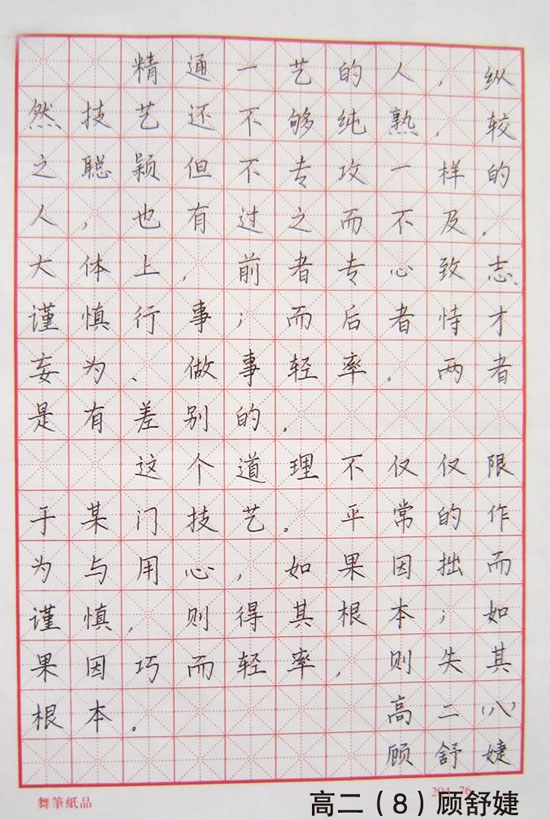 精通一艺的人，纵
然技艺还不够纯熟，较
之聪颖但不专攻一样的
人，也有过之而不及。
大体上，前者专心致志、
谨慎行事；而后者恃才
妄为、做事轻率。两者
是有差别的。
这个道理不仅仅限
于某门技艺。平常的作
为与用心，如果因拙而
谨慎，则得其根本；如
果因巧而轻率，则失其
根本。 高二(八)
顾舒婕
舞筆紙品
高二（8）顾舒婕